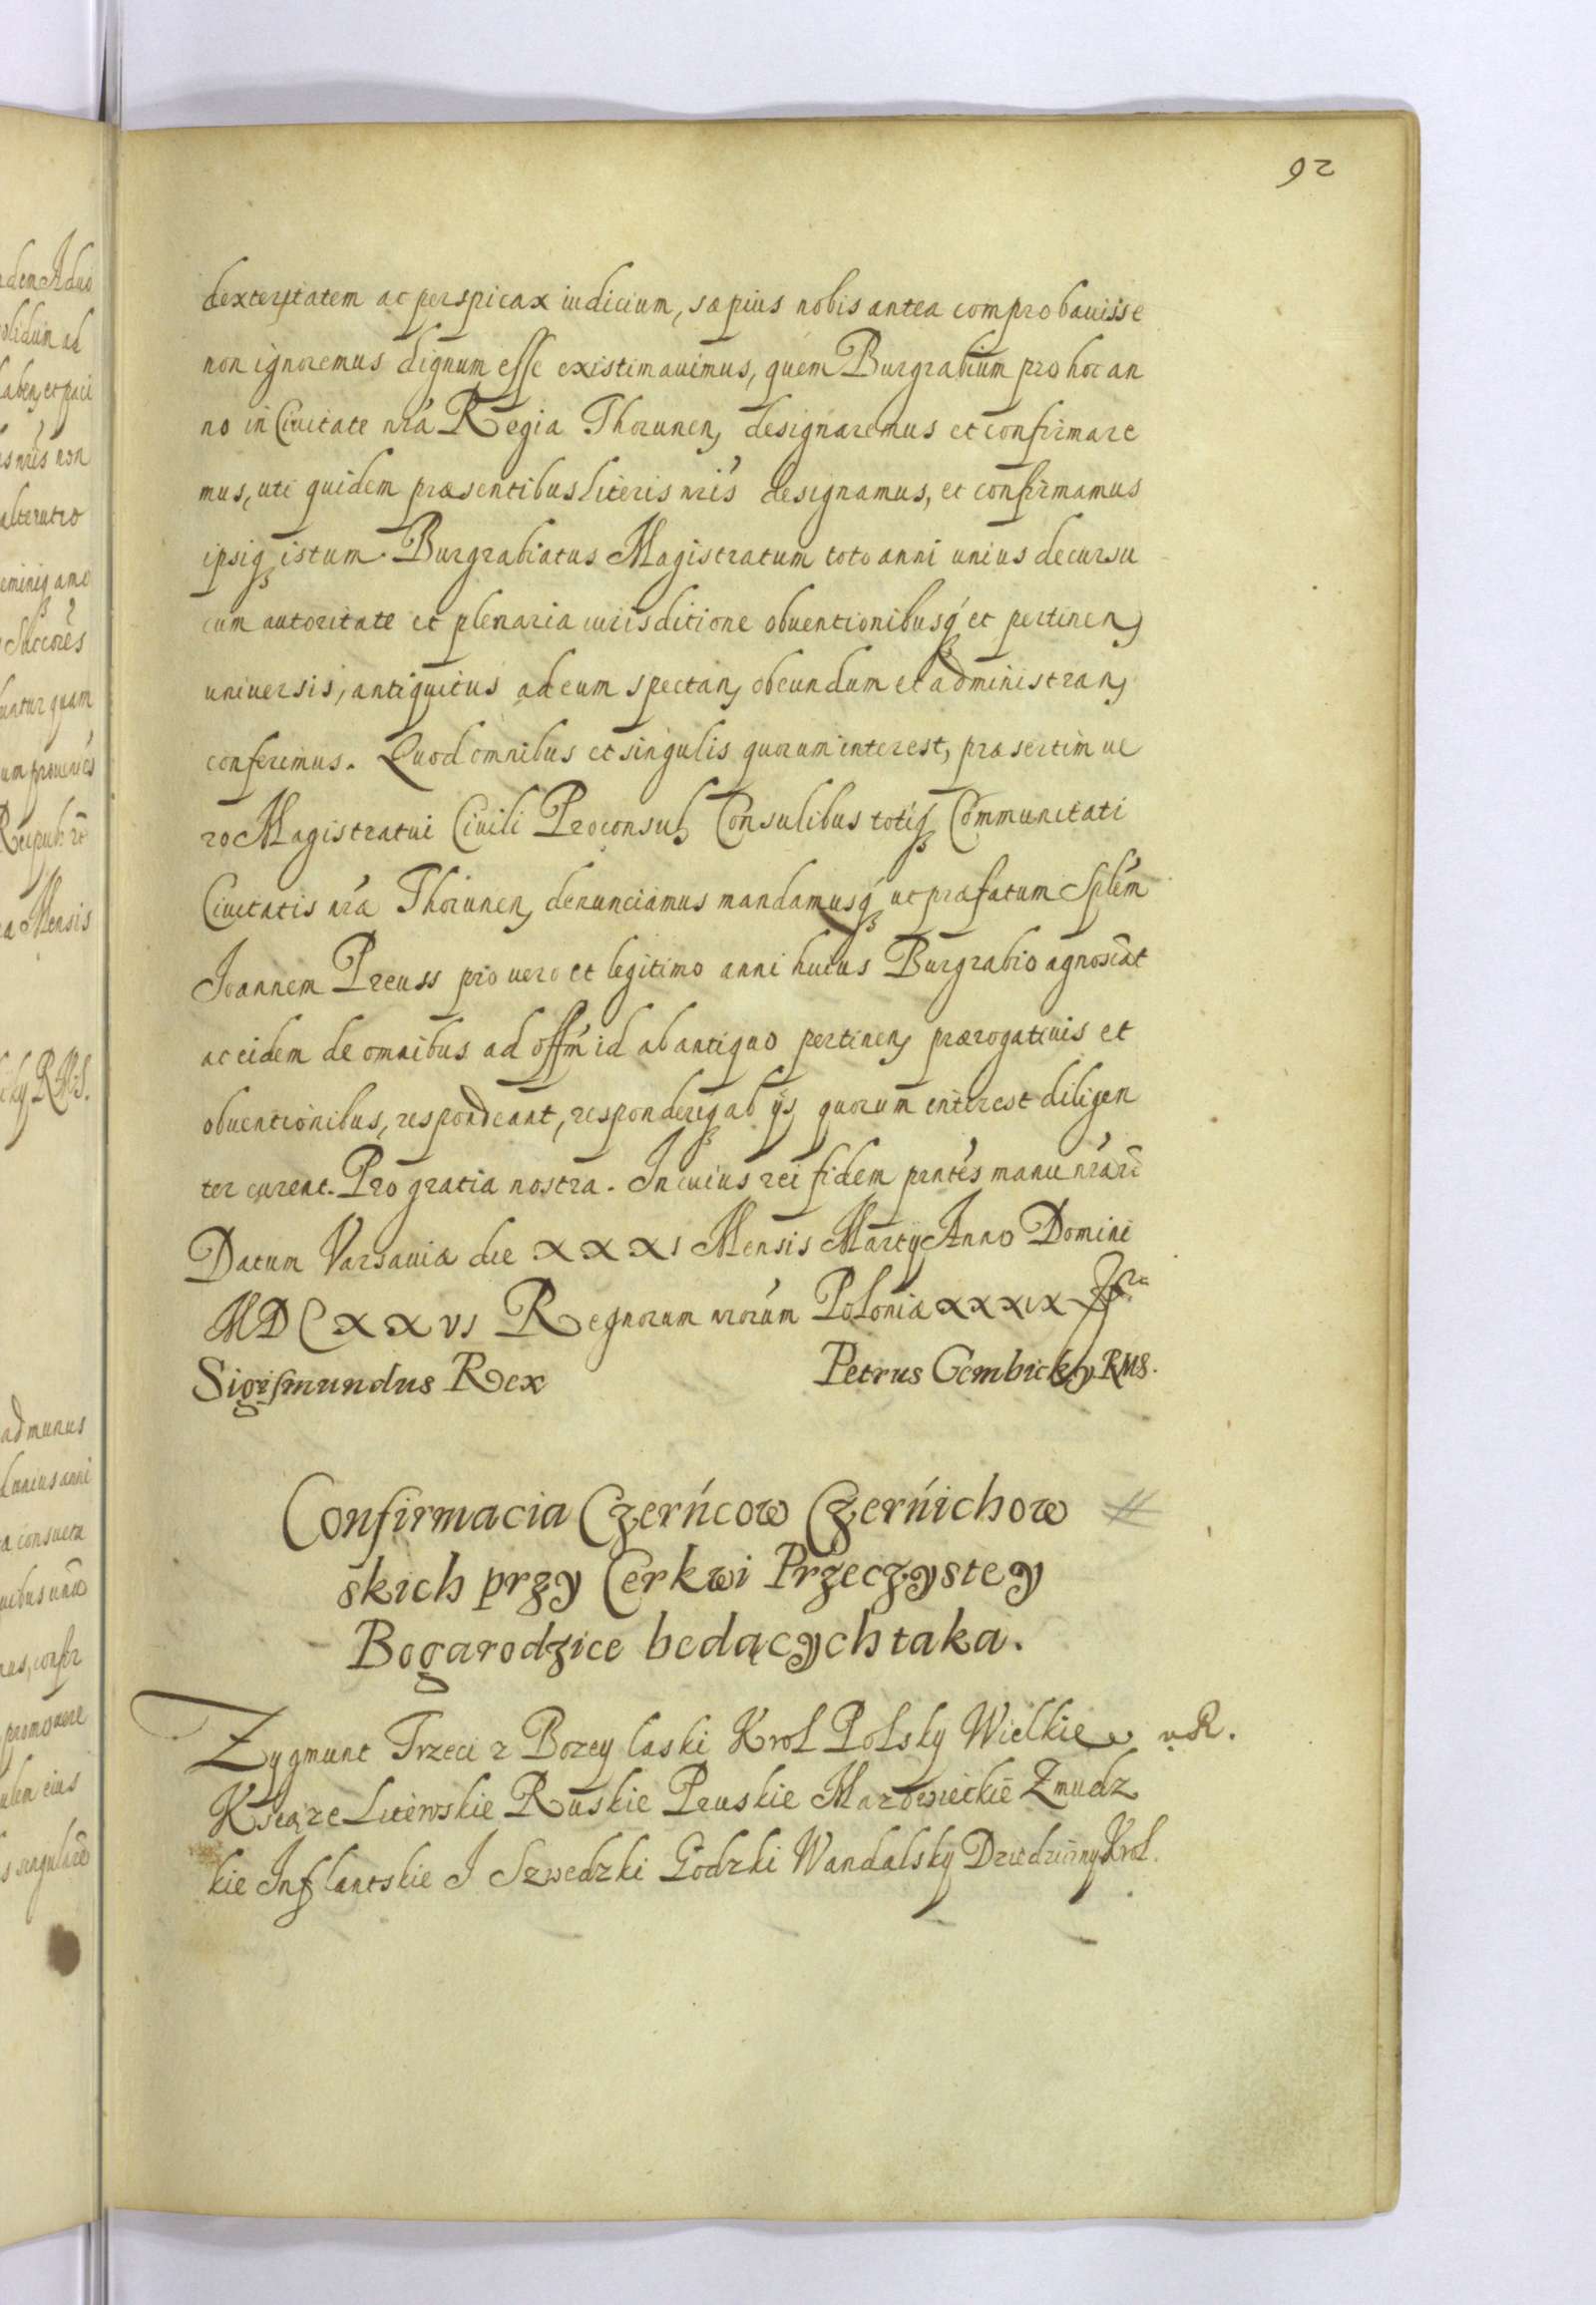 92
dexteritatem ac perspicax iudicium, sæpius nobis antea comprobauisse
non ignoremus dignum esse existimauimus, quem Burgrabium pro hoc an
no in Ciuitate nrá Regia Thorunen, designaremus et confirmare
mus, uti quidem præsentibus literis nrís designamus, et confirmamus
ipsiq istum Burgrabiatus Magistratum toto anni unius decursu
cum autoritate et plenaria iurisditione obuentionibusq et pertinen,
uniuersis, antiquitus ad eum spectan, obeundum et administran,
conferimus. Quod omnibus et singulis quorum interest, præsertim ue
ro Magistratui Ciuili Proconsul, Consulibus totiq Communitati
Ciuitatis nrá Thorunen, denunciamus mandamusq ut præfatum Splém
Ioannem Preuss pro uero et legitimo anni huius Burgrabio agnoscāt
ac eidem de omnibus ad offm id ab antiquo pertinen, prærogatiuis et
obuentionibus, respondeant, responderiq ab ijs quorum interest diligen
ter curent. Pro gratia nostra. In cuius rei fidem pntés manu nrá
Datum Varsauiæ die XXXI Mensis Martij Anno Domini
MDCXXVI Regnorum nrorúm Poloniæ XXXIX
Sigismundus Rex Petrus Gembicky RMS.
Confirmacia Czerńcow Czerńichow
skich przy Cerkwi Przeczystey
Bogarodzice bedących taka.
Zygmunt Trzeci z Bozey laski Krol Polsky Wielkie
Ksiąze Litewskie Ruskie Pruskie Mazowieckie Zmudz
kie Inflantskie I Szwedzki Godzki Wandalsky Dziedziczny Krol.